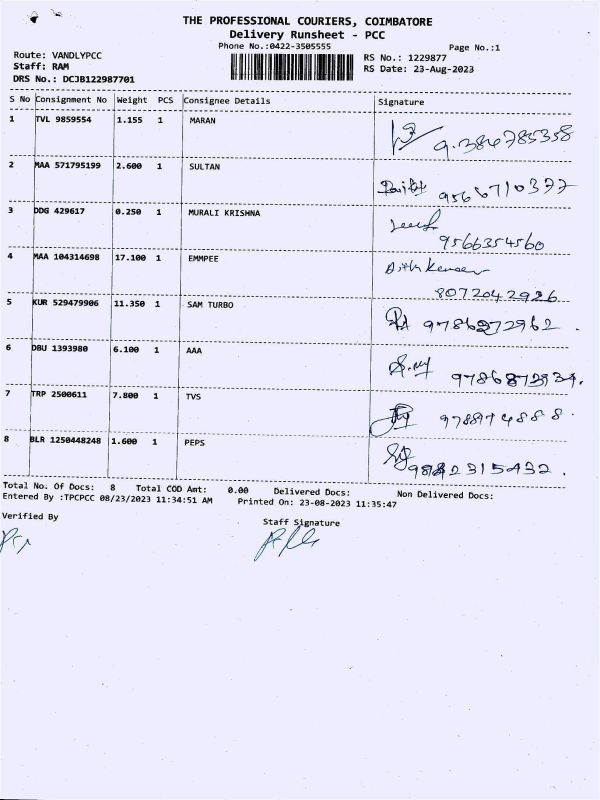 THE PROFESSIONAL COURIERS, COIMBATORE
Delivery Runsheet - PCC
Phone No.:0422-3505555
Page No.:1
Route: VANDLYPCC
RS No.: 1229877
Staff: RAM
RS Date: 23-Aug-2023
DRS No.: DCJB122987701
S No Consignment No Weight PCS Consignee Details Signature
1 TVL 9859554 1.155 1 MARAN
2 MAA 571795199 2.600 1 SULTAN
3 DDG 429617 0.250 1 MURALI KRISHNA
9566354560
4 MAA 104314698 17.100 1 EMMPEE
8072042926
5 KUR 529479906 11.350 1 SAM TURBO
6 DBU 1393980 6.100 1 AAA
7 TRP 2500611 7.800 1 TVS
8 BLR 1250448248 1.600 1 PEPS
Total No. Of Docs: 8 Total COD Amt: 0.00 Delivered Docs: Non Delivered Docs:
Entered By :TPCPCC 08/23/2023 11:34:51 AM Printed On: 23-08-2023 11:35:47
Verified By
Staff Signature